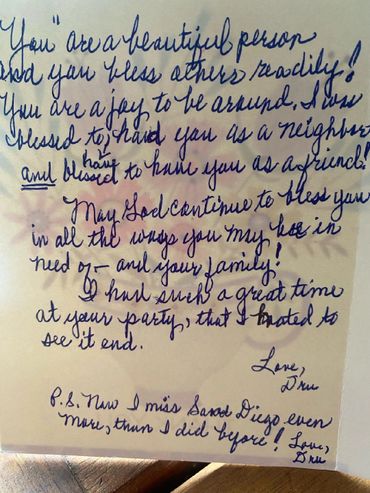 "You" are a beautiful person
and you bless others readily!
You are a joy to be around, I was
blessed to, had you as a neighbor
and blessed to have you as a friend!
May God continue to bless you
in all the ways you may be in
need of – and your family!
I had such a great time
at your party, that I hated to
see it end.
Love,
Dru
P.S. Now I miss Sand Diego even
more, than I did before! Love,
Dru